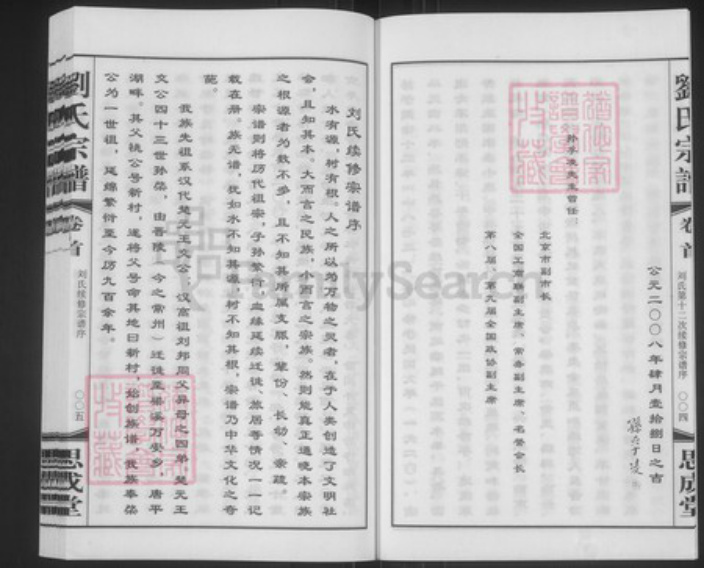 劉氏宗譜
卷首
刘氏第十二次续修宗谱序
〇〇四
思成堂
公元二〇〇八年肆月壹拾捌日之吉
孙孚凌先生曾任：
北京市副市长
全国工商联副主席、常务副主席、名誉会长
第八届、第九届全国政协副主席
刘氏续修宗谱序
水有源，树有根。人之所以为万物之灵者，在于人类创造了文明社
会，且知其本。大而言之民族，小而言之宗族。然则能真正通晓本宗族
之根源者为数不多，且不知其所属支脉，辈份、长幼、亲疏。
宗谱则将历代祖宗，子孙繁衍，血缘延续迁徙、旅居等情况一一记
载在册。族无谱，犹如水不知其源，树不知其根，宗谱乃中华文化之奇
葩。
我族先祖系汉代楚元王交公；汉高祖刘邦同父异母之四弟，楚元王
交公四十三世孙荣，由晋陵（今之常州）迁徙至梁溪万安乡，唐平
湖畔。其父桃公号新村，遂将父号命其地曰新村，始创族谱，我族奉荣
公为一世祖，延绵繁衍至今历九百余年。
劉氏宗譜
卷首
刘氏续修宗谱序
〇〇五
思成堂
FamilySearch